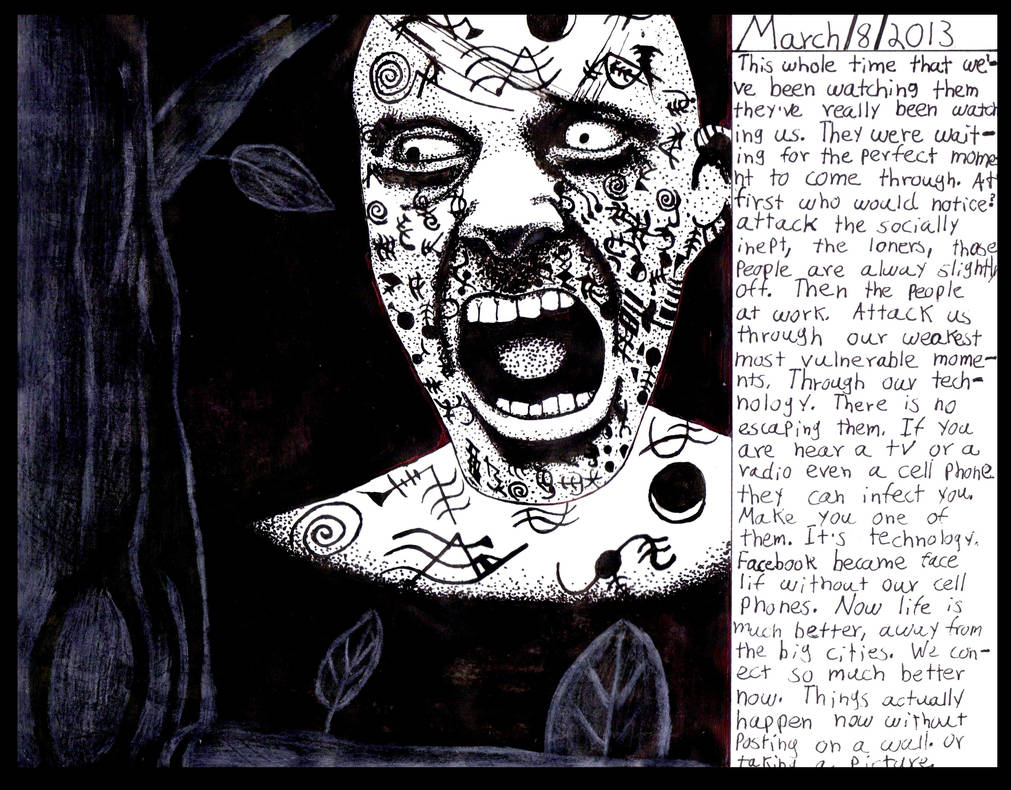 March/8/2013
This whole time that we'-
ve been watching them
they've really been watch
ing us. They were wait-
ing for the perfect mome
nt to come through. At
first who would notice?
attack the socially
inept, the loners, those
people are alway slightly
off. Then the people
at work. Attack us
through our weakest
most vulnerable mome-
nts. Through our tech-
nology. There is no
escaping them. If you
are near a tv or a
radio even a cell phone
they can infect you.
Make you one of
them. It's technology.
Facebook became face
lif without our cell
phones. Now life is
much better, away from
the big cities. We con-
ect so much better
now. Things actually
happen now without
posting on a wall. or
taking a picture.